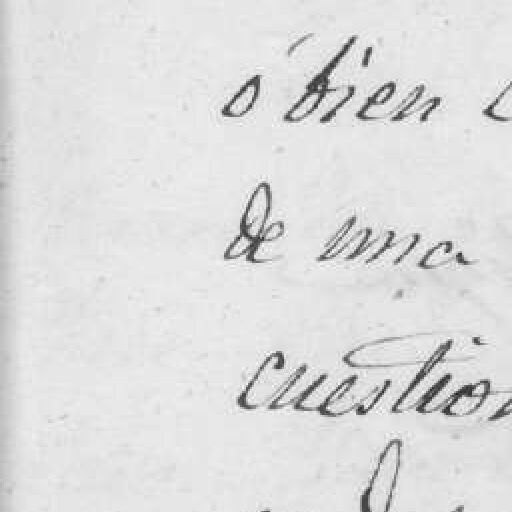 ó bien
de una
cuestion